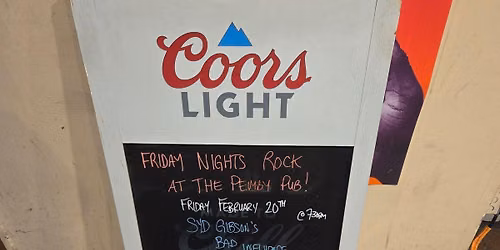 Coors
LIGHT
FRIDAY NIGHTS ROCK
AT THE PEMBY PUB!
FRIDAY FEBRUARY 20TH
SYD GIBSON'S
BAD